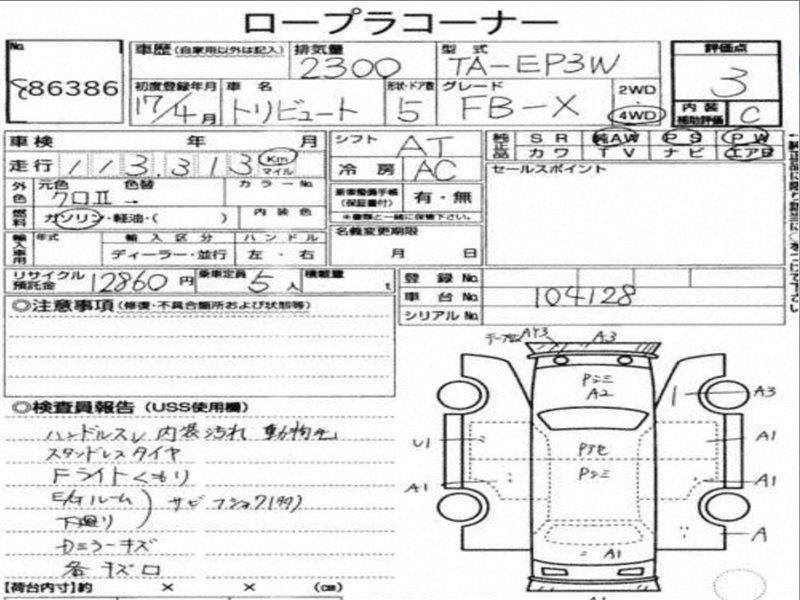 ロープラコーナー
No.
86386
車歴 (自家用以外は記入)
排気量
2300
型式
TA-EP3W
評価点
3
内装
補助評価
C
初度登録年月
17/4月
車名
トリビュート
形状・ドア数
5
グレード
FB-X
2WD
4WD
車検 年 月
シフト
AT
純正品
SR 純AW PS PW
カワ TV ナビ エアB
走行 113,313 Km マイル
冷房
AC
セールスポイント
外色
元色 色替
クロⅡ →
カラーNo.
新車整備手帳
(保証書付)
有・無
※書類と一緒に保管下さい。
燃料
ガソリン・軽油・( )
内装色
名義変更期限
月 日
輸入車用
年式
輸入区分
ディーラー・並行
ハンドル
左・右
リサイクル
預託金
12860円
乗車定員
5人
積載量
t
登録No.
車台No.
104128
シリアルNo.
◎注意事項 (修復・不具合箇所および状態等)
◎検査員報告 (USS使用欄)
ハンドルスレ 内装汚れ 動物毛
スタッドレスタイヤ
Fライトくもり
E/Gルーム
下廻り
サビ フショク
Dミラーキズ
各キズ
【荷台内寸】約 × × (cm)
AY3
A3
Pシミ
A2
A3
U1
Pシミ
A1
A1
A1
A
A1